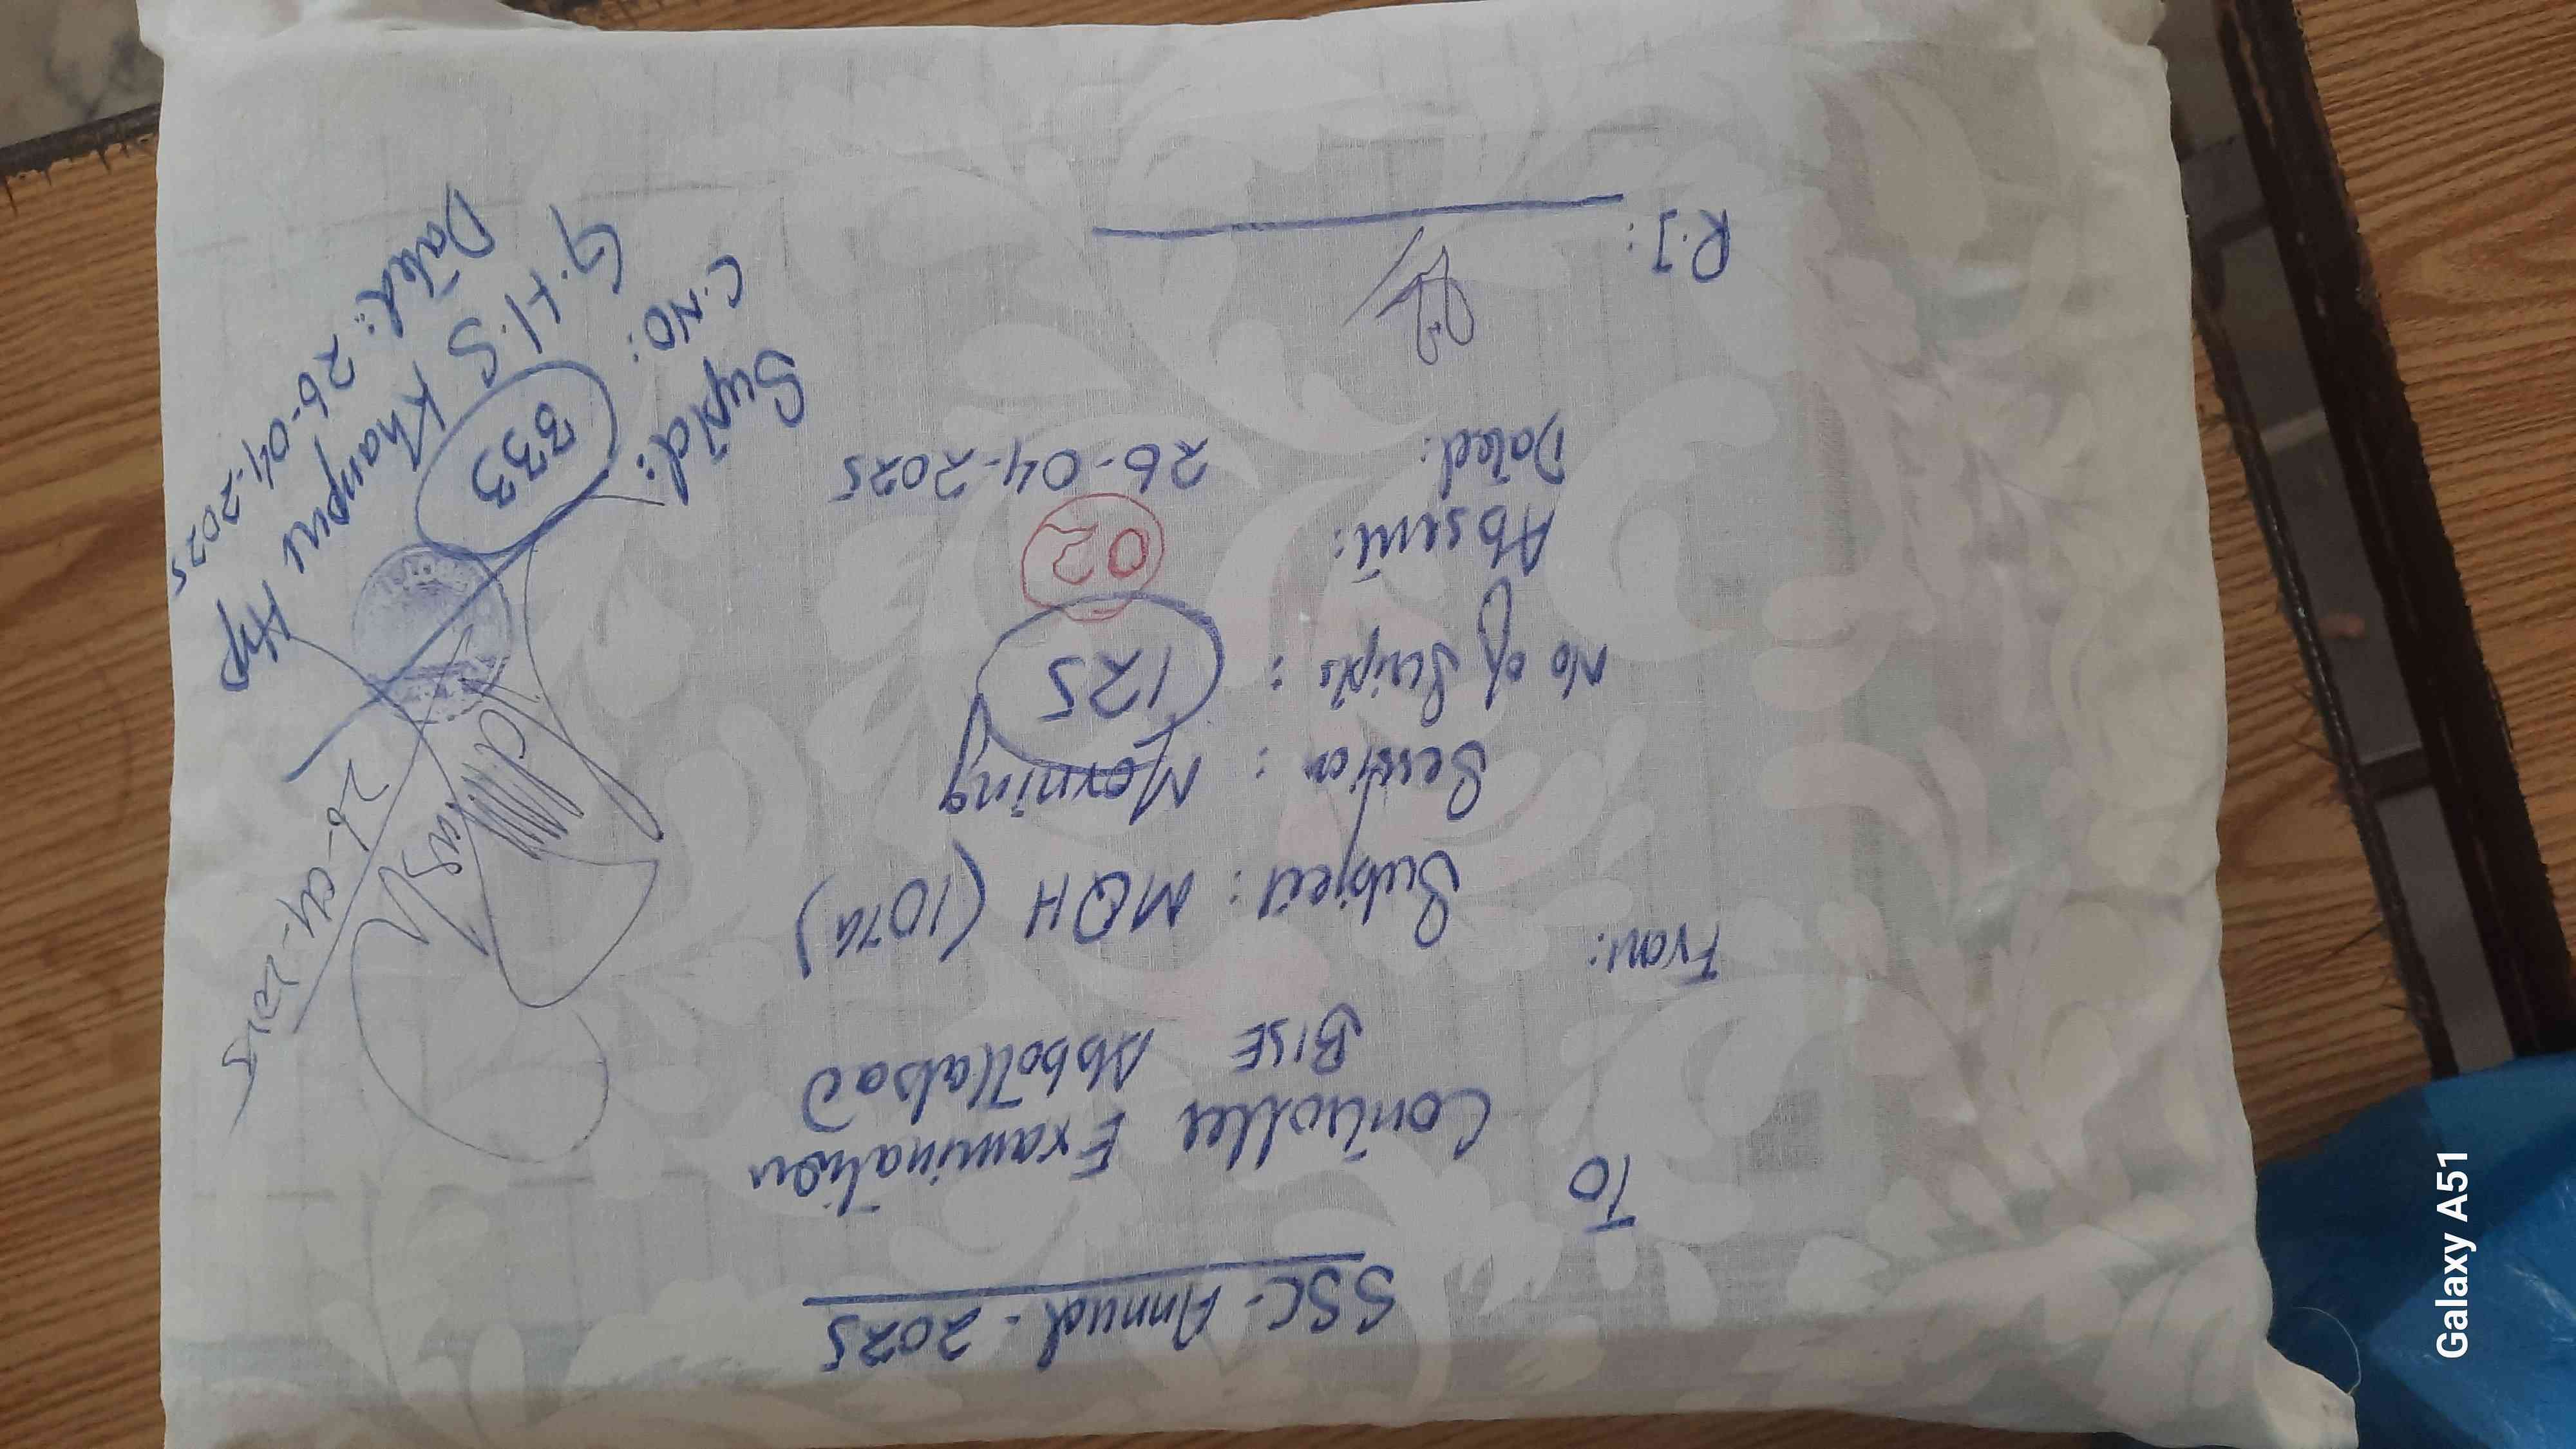 SSC-Annual-2025
To
Controller Examination
BISE Abbottabad
From:
Subject: MQH (10th)
Session: Morning
No of Scripts: 125
Absent: 02
Dated: 26-04-2025
R.I:
Suptd:
C.NO: 333
G.H.S Khanpur Hrp
Dated: 26-04-2025
26-04-2025
Galaxy A51